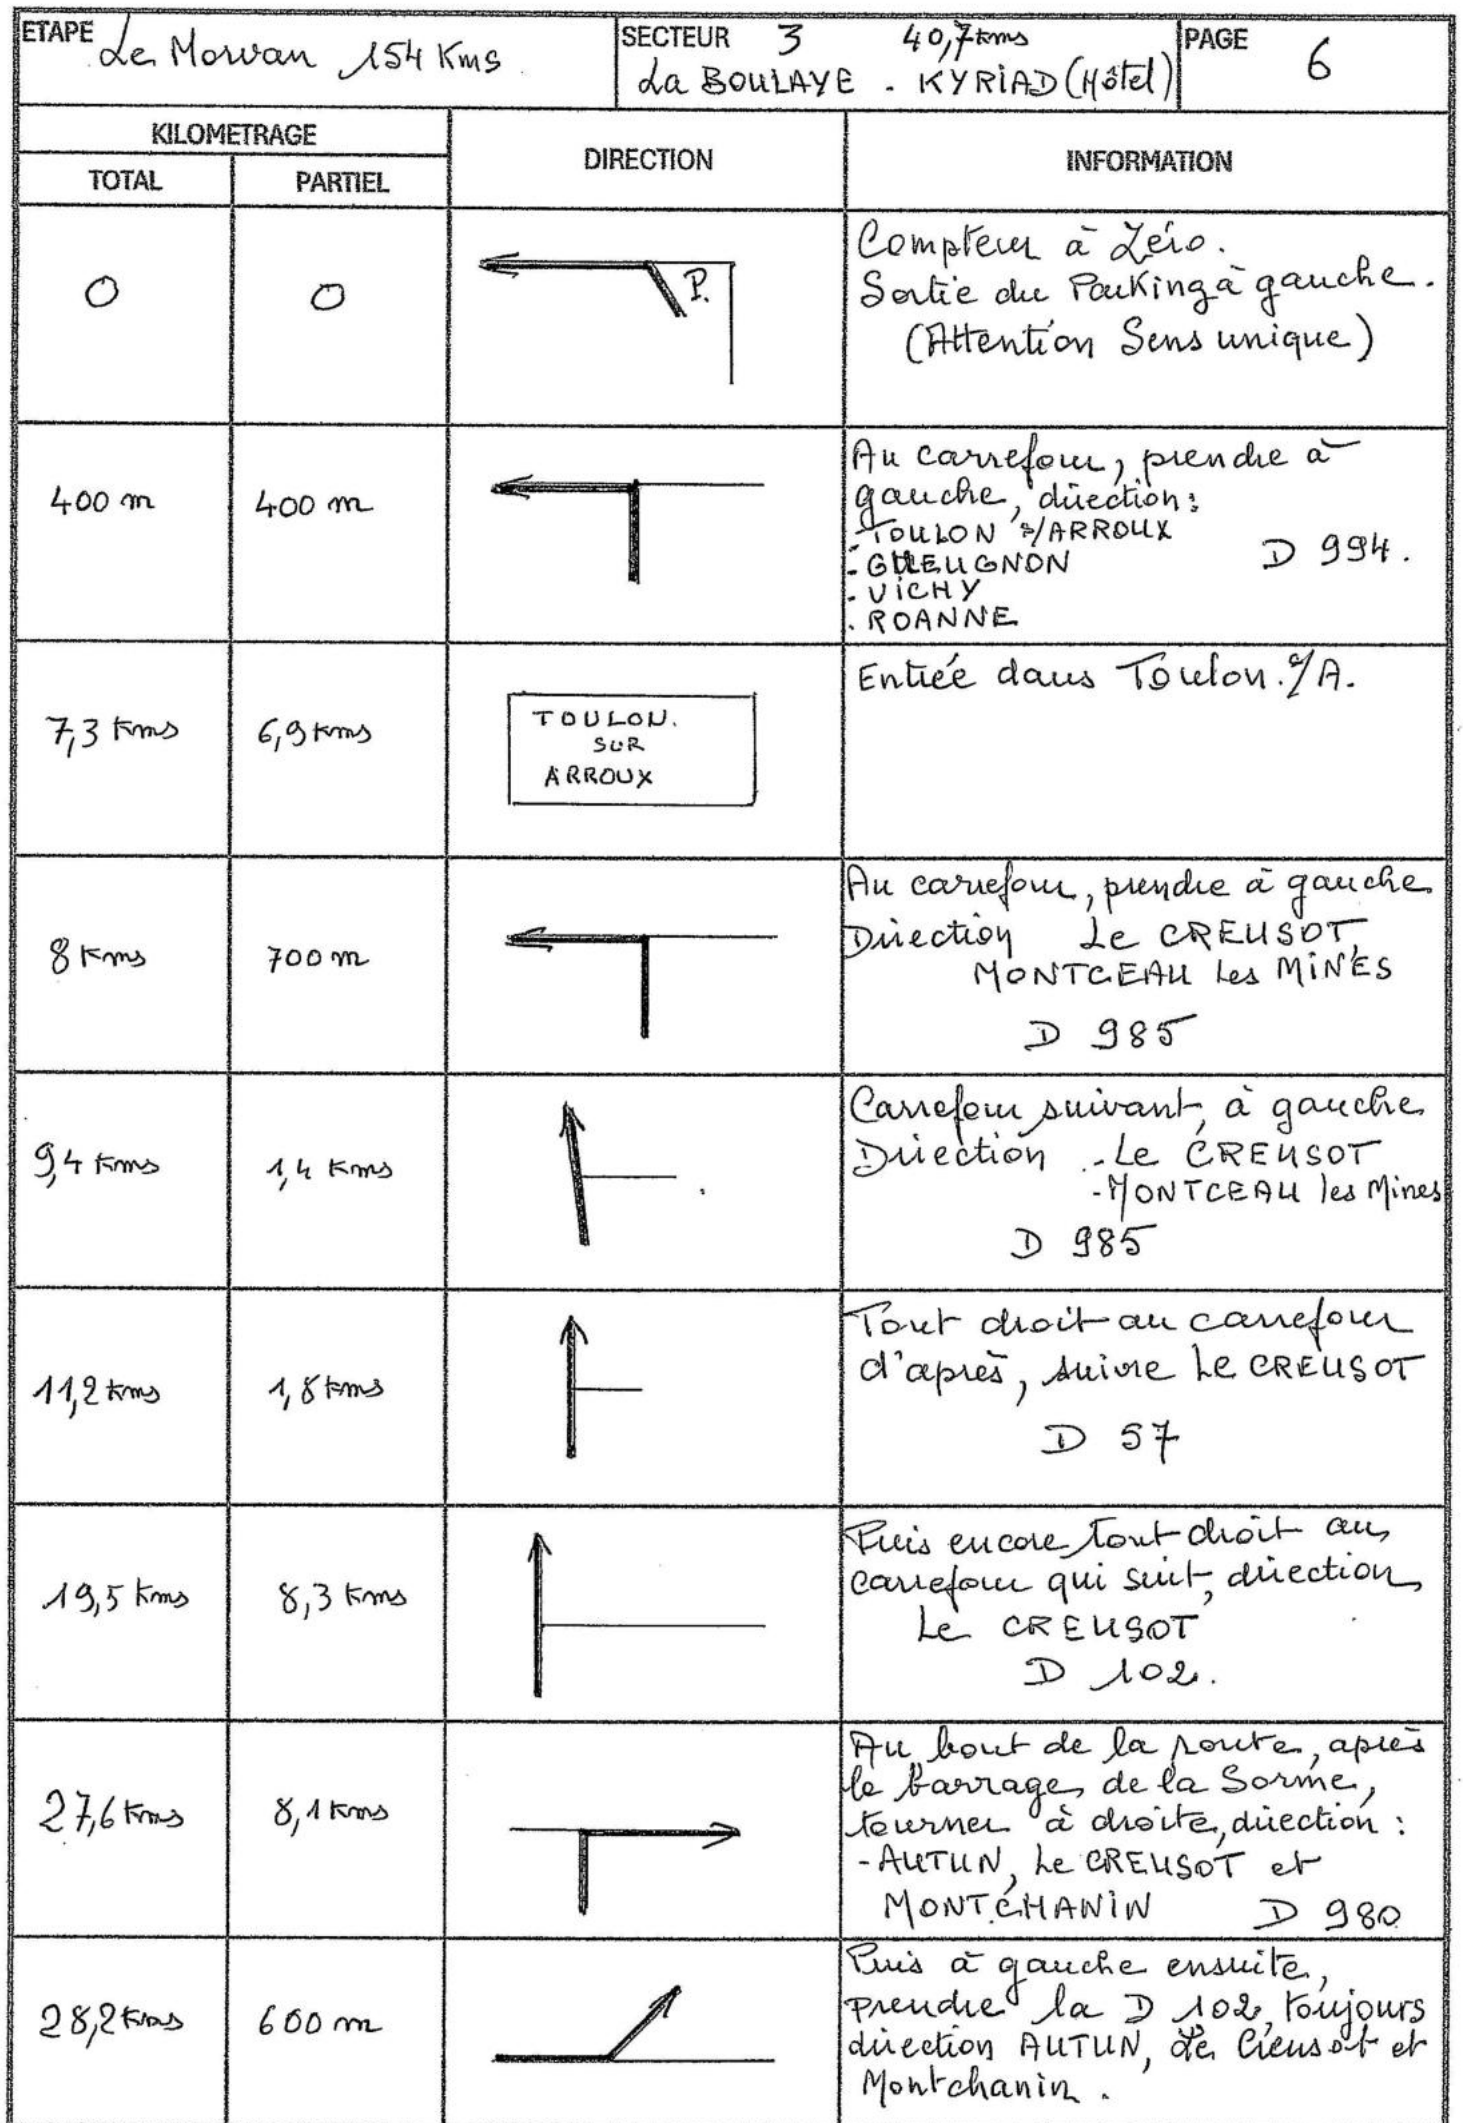 ETAPE Le Morvan 154 Kms
SECTEUR 3 40,7 kms
La BOULAYE - KYRIAD (Hôtel)
PAGE 6
KILOMETRAGE
TOTAL PARTIEL
DIRECTION
INFORMATION
0 0
P.
Compteur à Zéro.
Sortie du Parking à gauche.
(Attention Sens unique)
400 m 400 m
Au carrefour, prendre à
gauche, direction:
- TOULON s/ARROUX
- GUEUGNON D 994.
- VICHY
. ROANNE
7,3 Kms 6,9 kms
TOULON.
SUR
ARROUX
Entrée dans Toulon s/A.
8 Kms 700 m
Au carrefour, prendre à gauche
Direction Le CREUSOT,
MONTCEAU les MINES
D 985
9,4 Kms 1,4 Kms
Carrefour suivant, à gauche
Direction - Le CREUSOT
- MONTCEAU les Mines
D 985
11,2 kms 1,8 kms
Tout droit au carrefour
d'après, suivre Le CREUSOT
D 57
19,5 Kms 8,3 Kms
Puis encore tout droit au
carrefour qui suit, direction
Le CREUSOT
D 102.
27,6 Kms 8,1 Kms
Au bout de la route, après
le barrage de la Sorme,
tourner à droite, direction :
- AUTUN, Le CREUSOT et
MONTCHANIN D 980
28,2 Kms 600 m
Puis à gauche ensuite,
prendre la D 102, toujours
direction AUTUN, Le Creusot et
Montchanin.